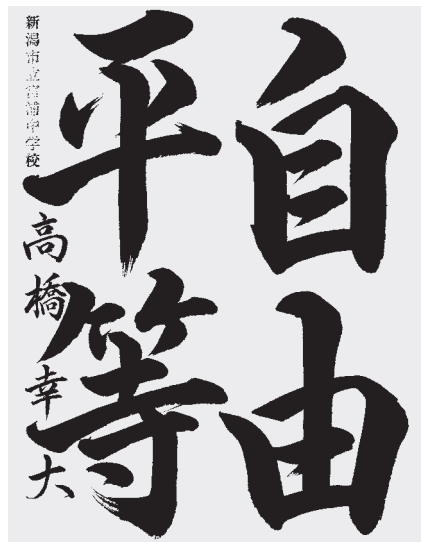 自由
平等
新潟市立宮浦中学校
高橋幸大